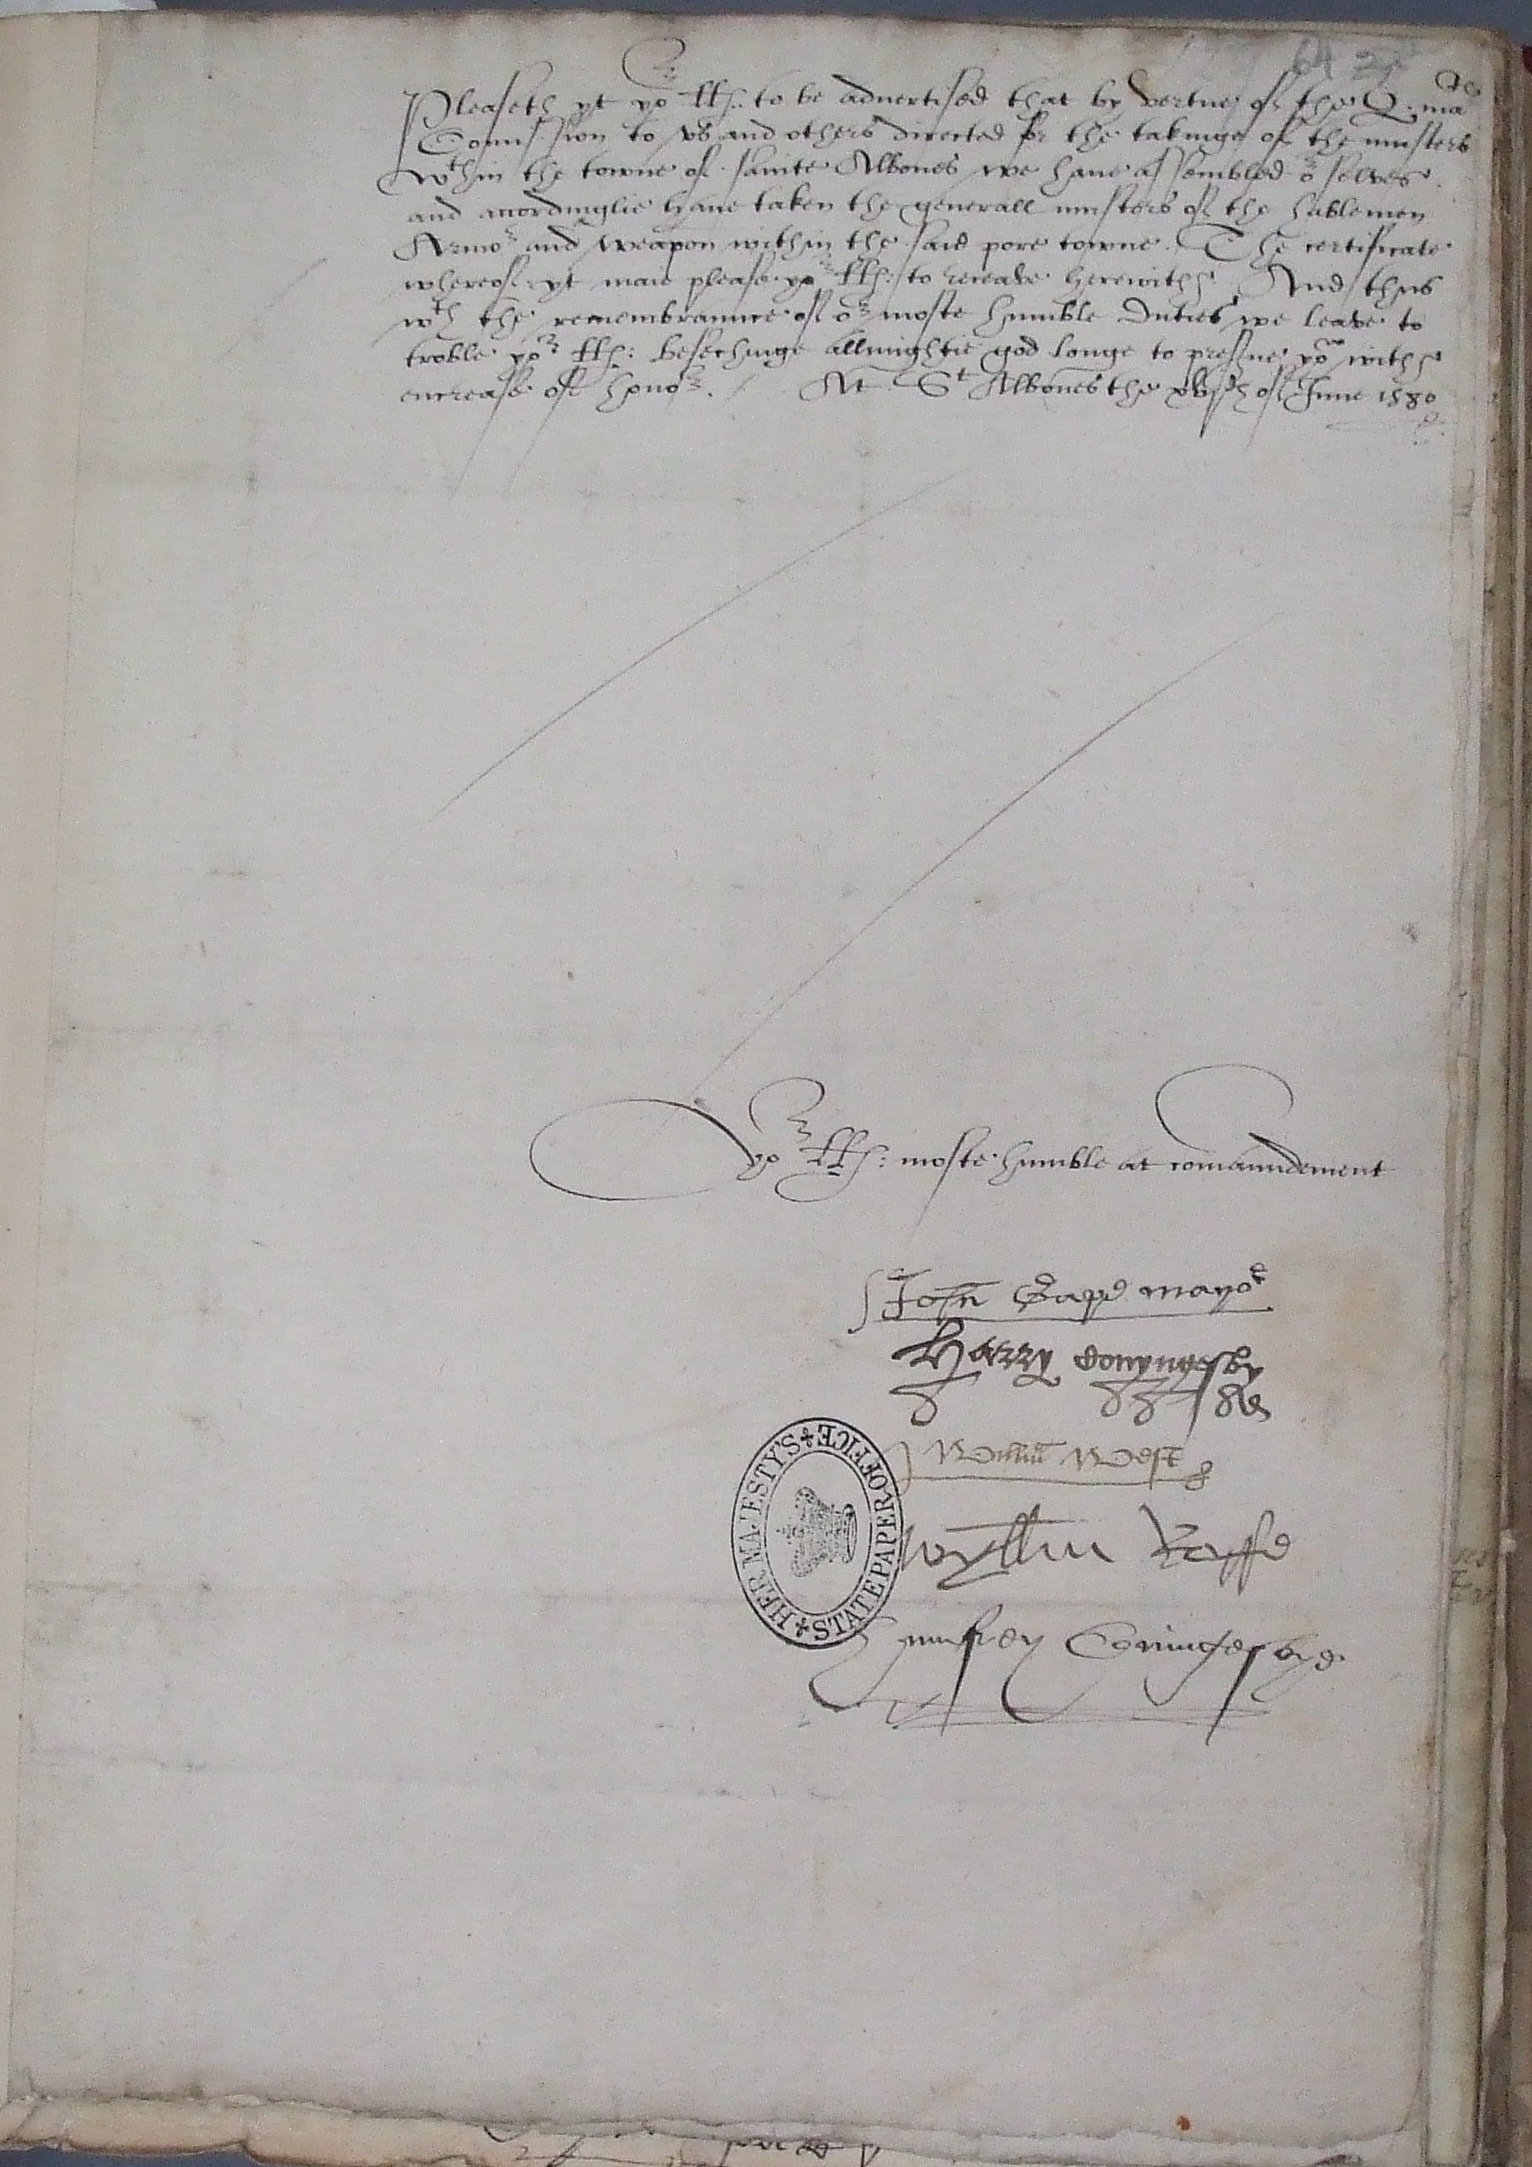 64
Pleaseth yt yor LLs: to be advertised that by vertue of the Q. matis
Comission to vs and others directed for the takinge of the musters
wthin the towne of sainte Albones we haue assembled or selves
and accordinglie haue taken the generall musters of the hablemen
Armor and weapon within the said pore towne. The certificate
whereof yt maie please yor LLs: to receave herewith And thus
wth the remembraunce of or moste humble duties we leave to
troble yor LLs: besechinge allmightie god longe to preserue yow with
encrease of honor. At St Albones the xvjth of June 1580
yor LLs: moste humble at comaundement
John mayor
Harry Conyngesby
Willm West
Wyllm Rolffe
Humfrey Coningesbye
HER MAJESTY'S STATE PAPER OFFICE